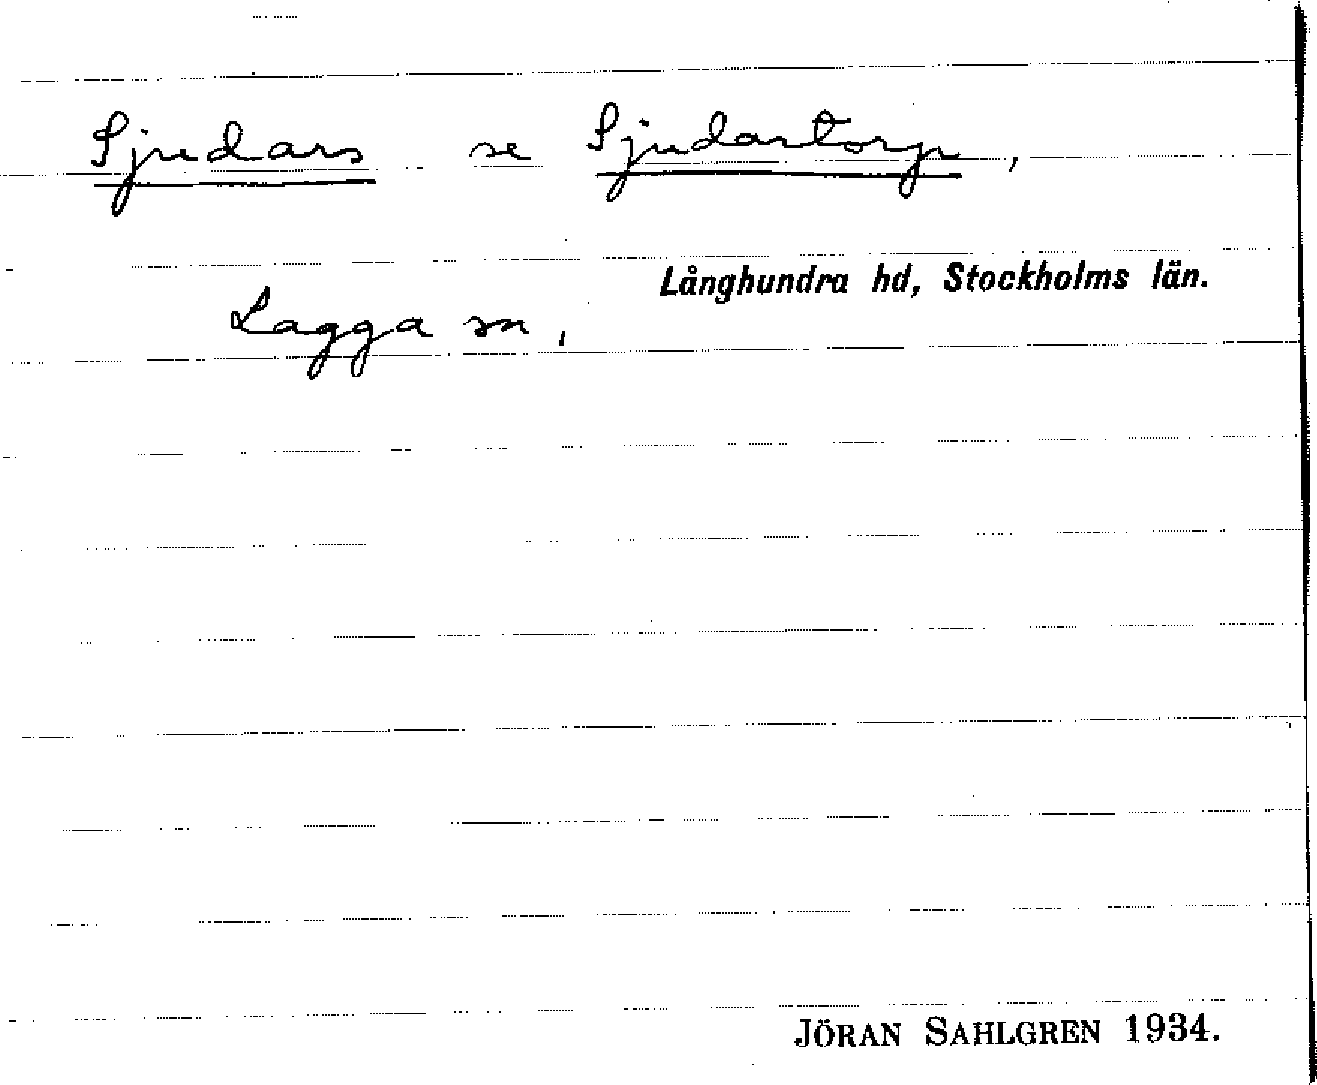 Sjudars se Sjudartorp,
Långhundra hd, Stockholms län.
Lagga sn,
JÖRAN SAHLGREN 1934.